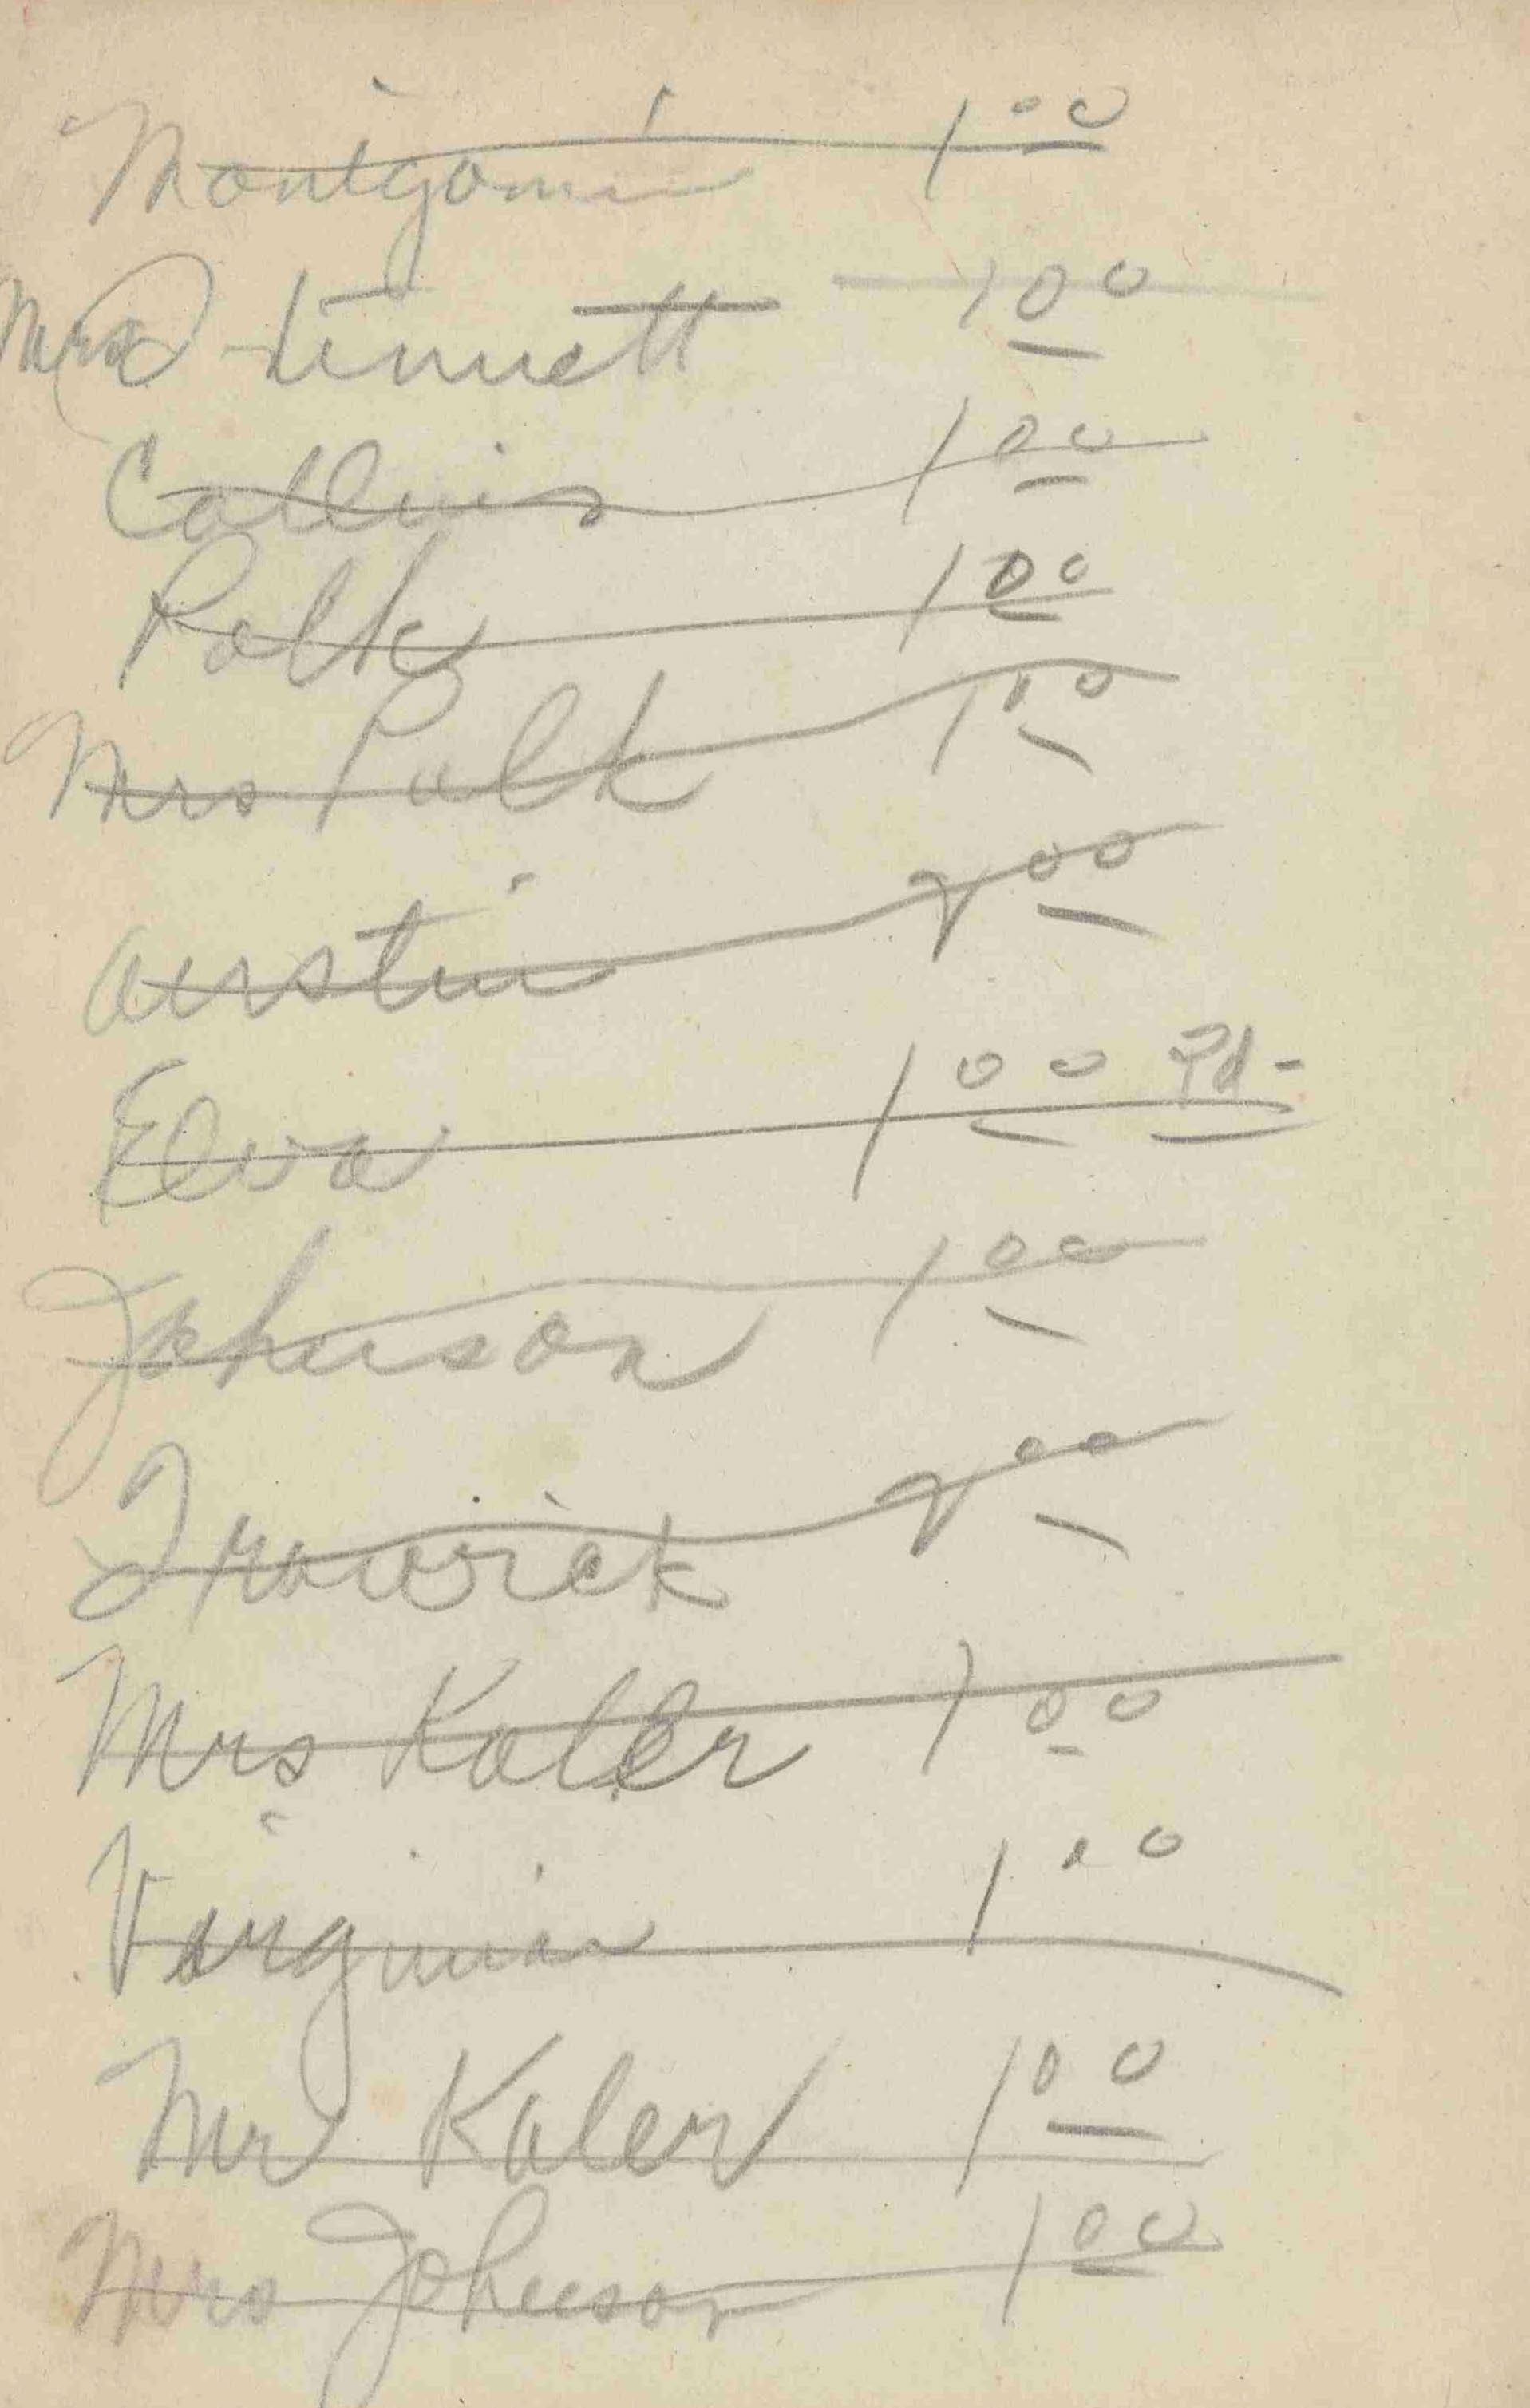 Montgomer 1 00
Mrs 1 00
Collins 1 00
Polk 1 00
Mrs Polk 1 00
Austin 2 00
Elva 1 00 Pd-
Johnson 1 00
Trawick 2 00
Mrs Koler 1 00
Virginia 1 00
Mr Koler 1 00
Mrs Johnson 1 00